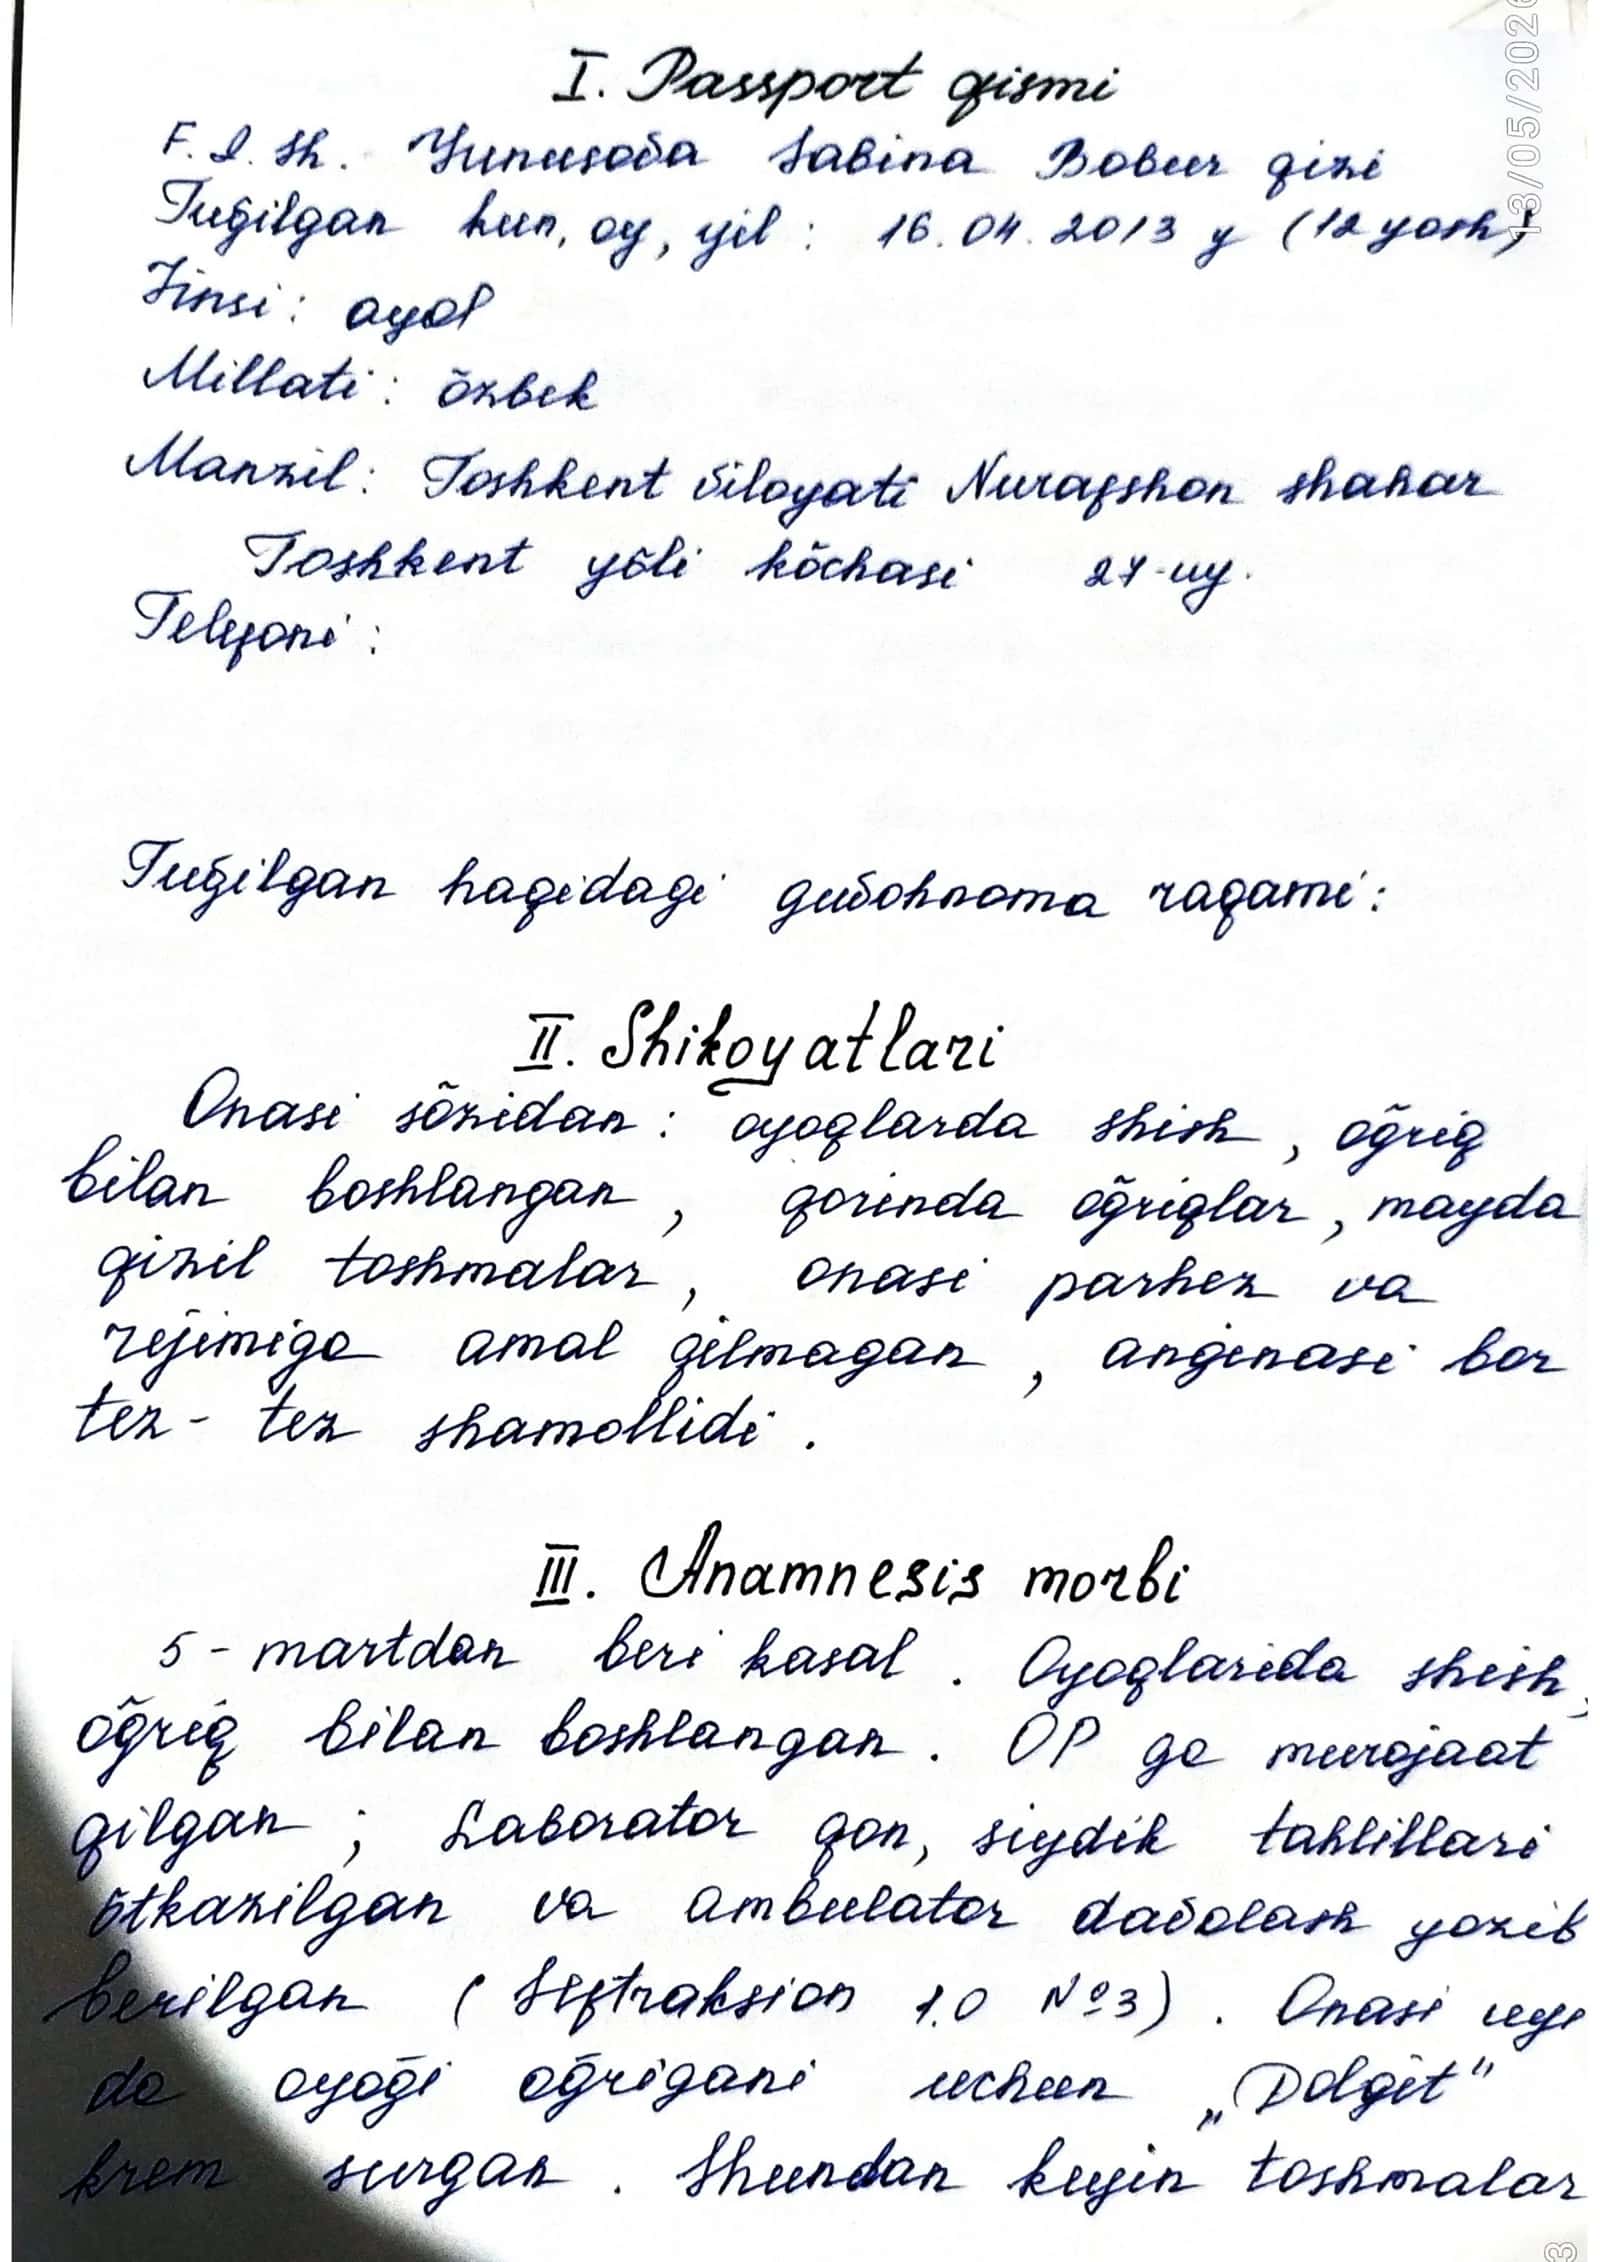 I. Passport qismi
F. I. Sh. Yunusova Sabina Bobur qizi
Tug̃ilgan kun, oy, yil : 16.04.2013 y (12 yosh)
Jinsi : ayol
Millati : õzbek
Manzil : Toshkent viloyati Nurafshon shahar
Toshkent yõli kõchasi 27-uy.
Telefoni :
Tug̃ilgan haqidagi guvohnoma raqami :
II. Shikoyatlari
Onasi sõzidan : oyoqlarda shish, õg̃riq
bilan boshlangan, qorinda õg̃riqlar, mayda
qizil toshmalar, onasi parhez va
rejimiga amal qilmagan, anginasi bor
tez-tez shamollidi.
III. Anamnesis morbi
5-martdan beri kasal. Oyoqlarida shish,
õg̃riq bilan boshlangan. OP ga murojaat
qilgan ; Laborator qon, siydik tahlillari
õtkazilgan va ambulator davolash yozib
berilgan ( Seftraksion 1.0 №3). Onasi uyi
da oyog̃i og̃rigani uchun „Dolgit"
krem surgan. Shundan keyin toshmalar
13/05/202